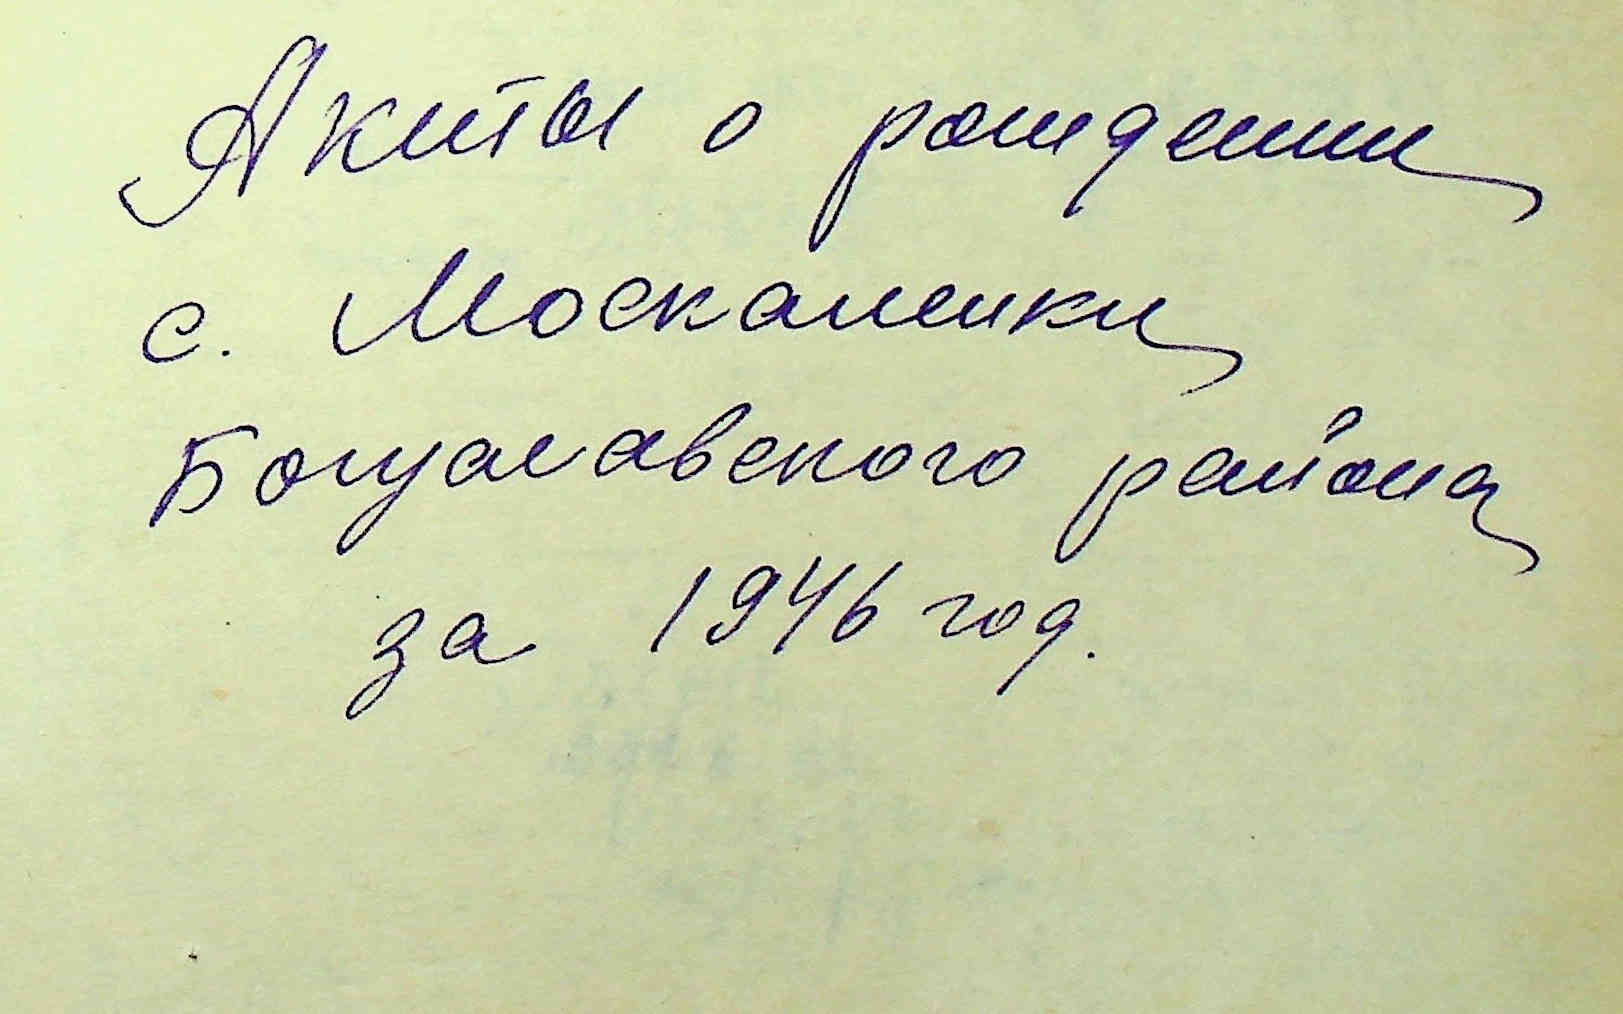 Акты о рождении
с. Москаленки
Богуславского района
за 1946 год.